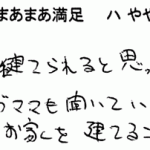 まあまあ満足 ハ やや
建てられると思っ
ママも聞いてい
お家を建てるこ